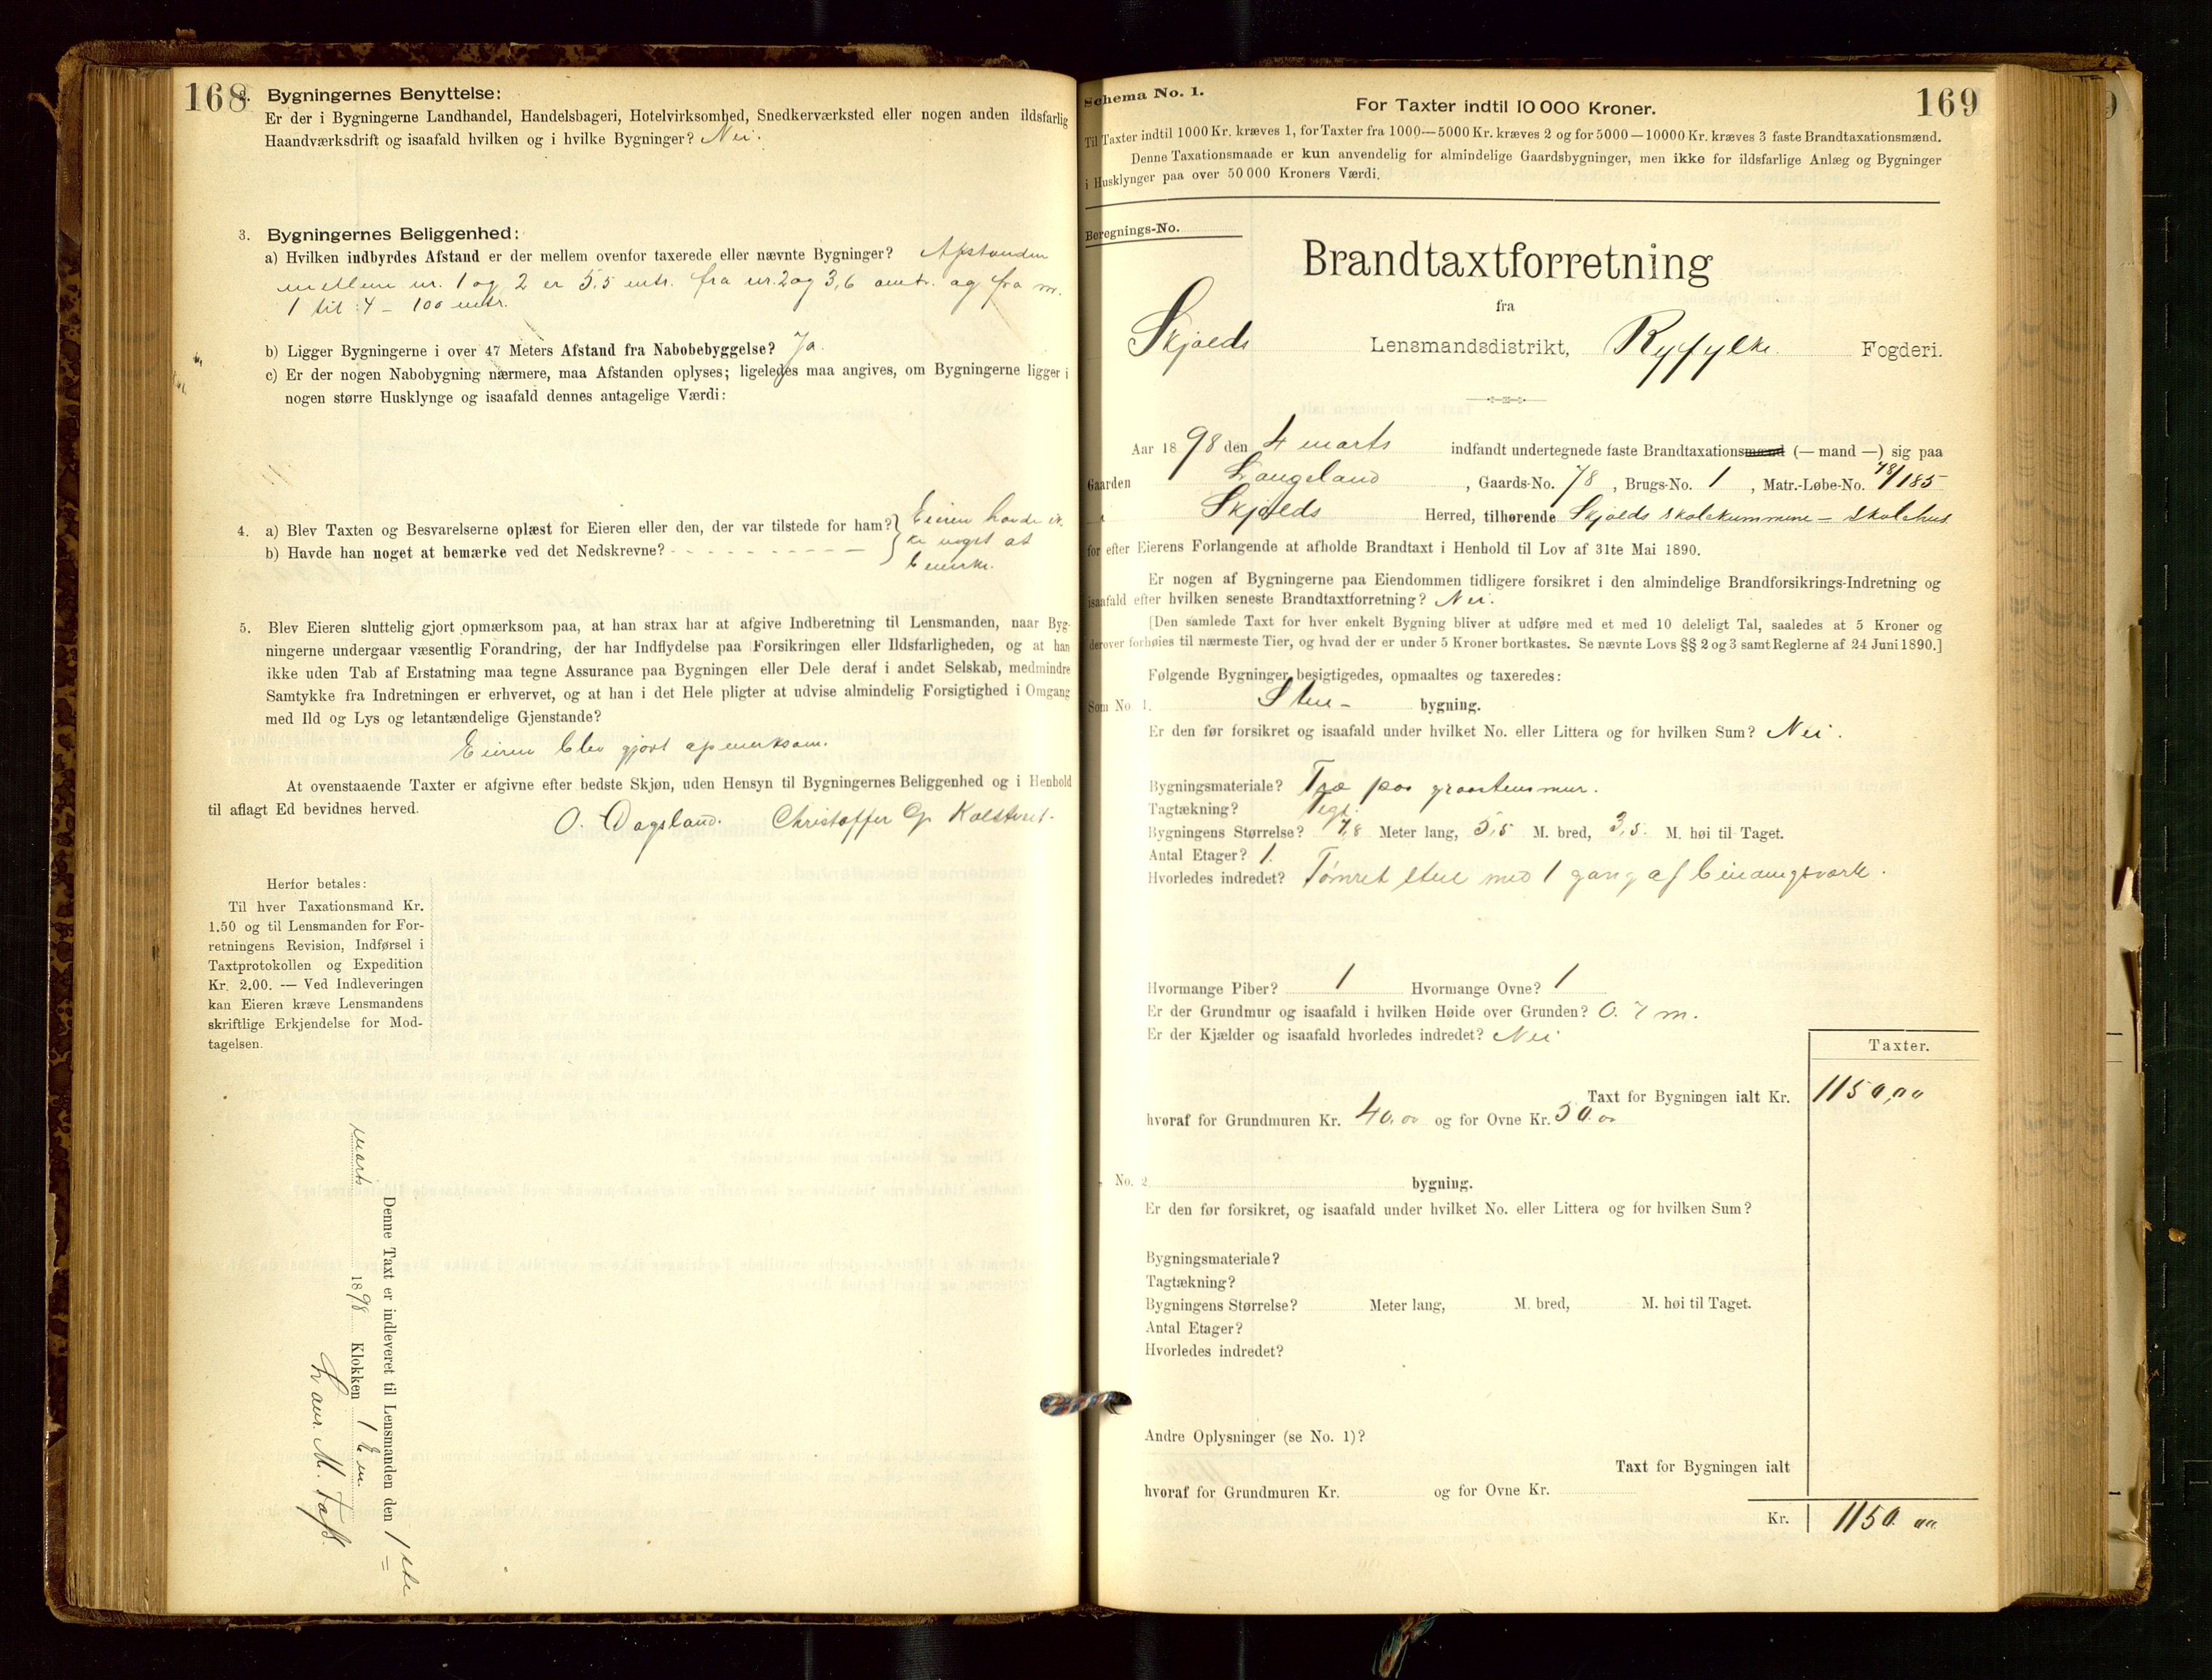 168
2. Bygningernes Benyttelse:
Er der i Bygningerne Landhandel, Handelsbageri, Hotelvirksomhed, Snedkerværksted eller nogen anden ildsfarlig
Haandværksdrift og isaafald hvilken og i hvilke Bygninger? Nei.
3. Bygningernes Beliggenhed:
a) Hvilken indbyrdes Afstand er der mellem ovenfor taxerede eller nævnte Bygninger? Afstanden
mellem nr. 1 og 2 er 5,5 mtr. fra nr. 2 og 3, 6 mtr. og fra nr.
1 til 4 – 100 mtr.
b) Ligger Bygningerne i over 47 Meters Afstand fra Nabobebyggelse? Ja.
c) Er der nogen Nabobygning nærmere, maa Afstanden oplyses; ligeledes maa angives, om Bygningerne ligger i
nogen større Husklynge og isaafald dennes antagelige Værdi:
4. a) Blev Taxten og Besvarelserne oplæst for Eieren eller den, der var tilstede for ham? Eieren havde ik-
b) Havde han noget at bemærke ved det Nedskrevne? ke noget at
bemerke.
5. Blev Eieren sluttelig gjort opmærksom paa, at han strax har at afgive Indberetning til Lensmanden, naar Byg-
ningerne undergaar væsentlig Forandring, der har Indflydelse paa Forsikringen eller Ildsfarligheden, og at han
ikke uden Tab af Erstatning maa tegne Assurance paa Bygningen eller Dele deraf i andet Selskab, medmindre
Samtykke fra Indretningen er erhvervet, og at han i det Hele pligter at udvise almindelig Forsigtighed i Omgang
med Ild og Lys og letantændelige Gjenstande?
Eieren blev gjort opmerksom.
At ovenstaaende Taxter er afgivne efter bedste Skjøn, uden Hensyn til Bygningernes Beliggenhed og i Henhold
til aflagt Ed bevidnes herved.
O. Dagsland. Christoffer G.
Herfor betales:
Til hver Taxationsmand Kr.
1.50 og til Lensmanden for For-
retningens Revision, Indførsel i
Taxtprotokollen og Expedition
Kr. 2.00. — Ved Indleveringen
kan Eieren kræve Lensmandens
skriftlige Erkjendelse for Mod-
tagelsen.
Denne Taxt er indleveret til Lensmanden den 1ste
marts 1898 Klokken 1 e. m.
Laur. M.
Schema No. 1.
For Taxter indtil 10000 Kroner.
169
Til Taxter indtil 1000 Kr. kræves 1, for Taxter fra 1000—5000 Kr. kræves 2 og for 5000—10000 Kr. kræves 3 faste Brandtaxationsmænd.
Denne Taxationsmaade er kun anvendelig for almindelige Gaardsbygninger, men ikke for ildsfarlige Anlæg og Bygninger
i Husklynger paa over 50000 Kroners Værdi.
Beregnings-No.
Brandtaxtforretning
fra
Skjolds Lensmandsdistrikt, Ryfylke Fogderi.
Aar 1898 den 4 marts indfandt undertegnede faste Brandtaxationsmænd (— mand —) sig paa
Gaarden Langeland, Gaards-No. 78, Brugs-No. 1, Matr.-Løbe-No. 78/185
i Skjolds Herred, tilhørende Skjolds skolekummune – skolehus
for efter Eierens Forlangende at afholde Brandtaxt i Henhold til Lov af 31te Mai 1890.
Er nogen af Bygningerne paa Eiendommen tidligere forsikret i den almindelige Brandforsikrings-Indretning og
isaafald efter hvilken seneste Brandtaxtforretning? Nei.
[Den samlede Taxt for hver enkelt Bygning bliver at udføre med et med 10 deleligt Tal, saaledes at 5 Kroner og
derover forhøies til nærmeste Tier, og hvad der er under 5 Kroner bortkastes. Se nævnte Lovs §§ 2 og 3 samt Reglerne af 24 Juni 1890.]
Følgende Bygninger besigtigedes, opmaaltes og taxeredes:
Som No 1. Stue- bygning.
Er den før forsikret og isaafald under hvilket No. eller Littera og for hvilken Sum? Nei.
Bygningsmateriale? Træ paa graastensmur.
Tagtækning? Tegl.
Bygningens Størrelse? 7,8 Meter lang, 5,5 M. bred, 3,5. M. høi til Taget.
Antal Etager? 1.
Hvorledes indredet? Tømret stue med 1 gang af bindingsværk.
Hvormange Piber? 1 Hvormange Ovne? 1
Er der Grundmur og isaafald i hvilken Høide over Grunden? 0.7 m.
Er der Kjælder og isaafald hvorledes indredet? Nei
Taxter.
Taxt for Bygningen ialt Kr. 1150,00
hvoraf for Grundmuren Kr. 40,00 og for Ovne Kr. 50.00
No. 2. bygning.
Er den før forsikret, og isaafald under hvilket No. eller Littera og for hvilken Sum?
Bygningsmateriale?
Tagtækning?
Bygningens Størrelse? Meter lang, M. bred, M. høi til Taget.
Antal Etager?
Hvorledes indredet?
Andre Oplysninger (se No. 1)?
Taxt for Bygningen ialt
hvoraf for Grundmuren Kr. og for Ovne Kr.
Kr. 1150.00